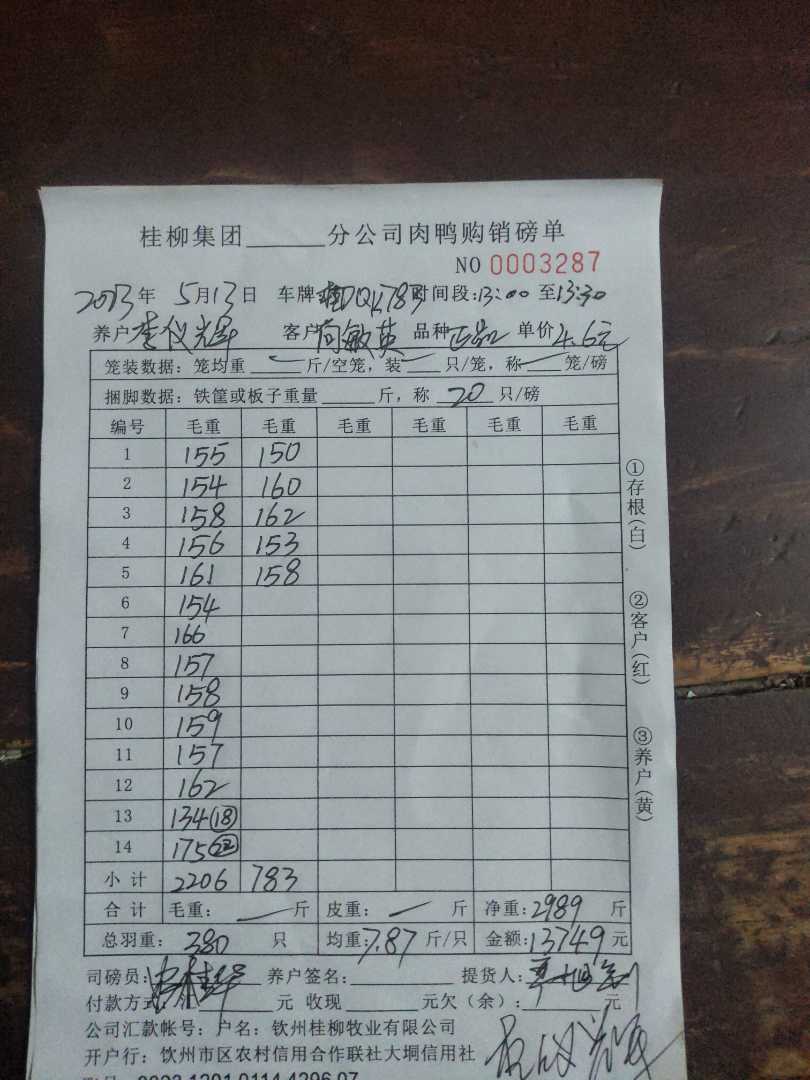 桂柳集团______分公司肉鸭购销磅单
NO 0003287
2013年 5月13日 车牌:桂DQK783 时间段:13:00 至13:30
养户 李仪光辉 客户 简敏英 品种 正品 单价 4.6元
笼装数据:笼均重 ______斤/空笼,装____只/笼,称____笼/磅
捆脚数据:铁筐或板子重量______斤,称 20 只/磅
编号 毛重 毛重 毛重 毛重 毛重 毛重
1 155 150
2 154 160
3 158 162
4 156 153
5 161 158
6 154
7 166
8 157
9 158
10 159
11 157
12 162
13 134 (18)
14 175 (22)
小计 2206 783
合计 毛重: 斤 皮重: 斤 净重:2989 斤
总羽重:380 只 均重:7.87 斤/只 金额:13749 元
司磅员: 养户签名:________ 提货人:
付款方式: 元 收现______元欠(余):______元
公司汇款帐号:户名:钦州桂柳牧业有限公司
开户行:钦州市区农村信用合作联社大垌信用社
①存根(白)
②客户(红)
③养户(黄)